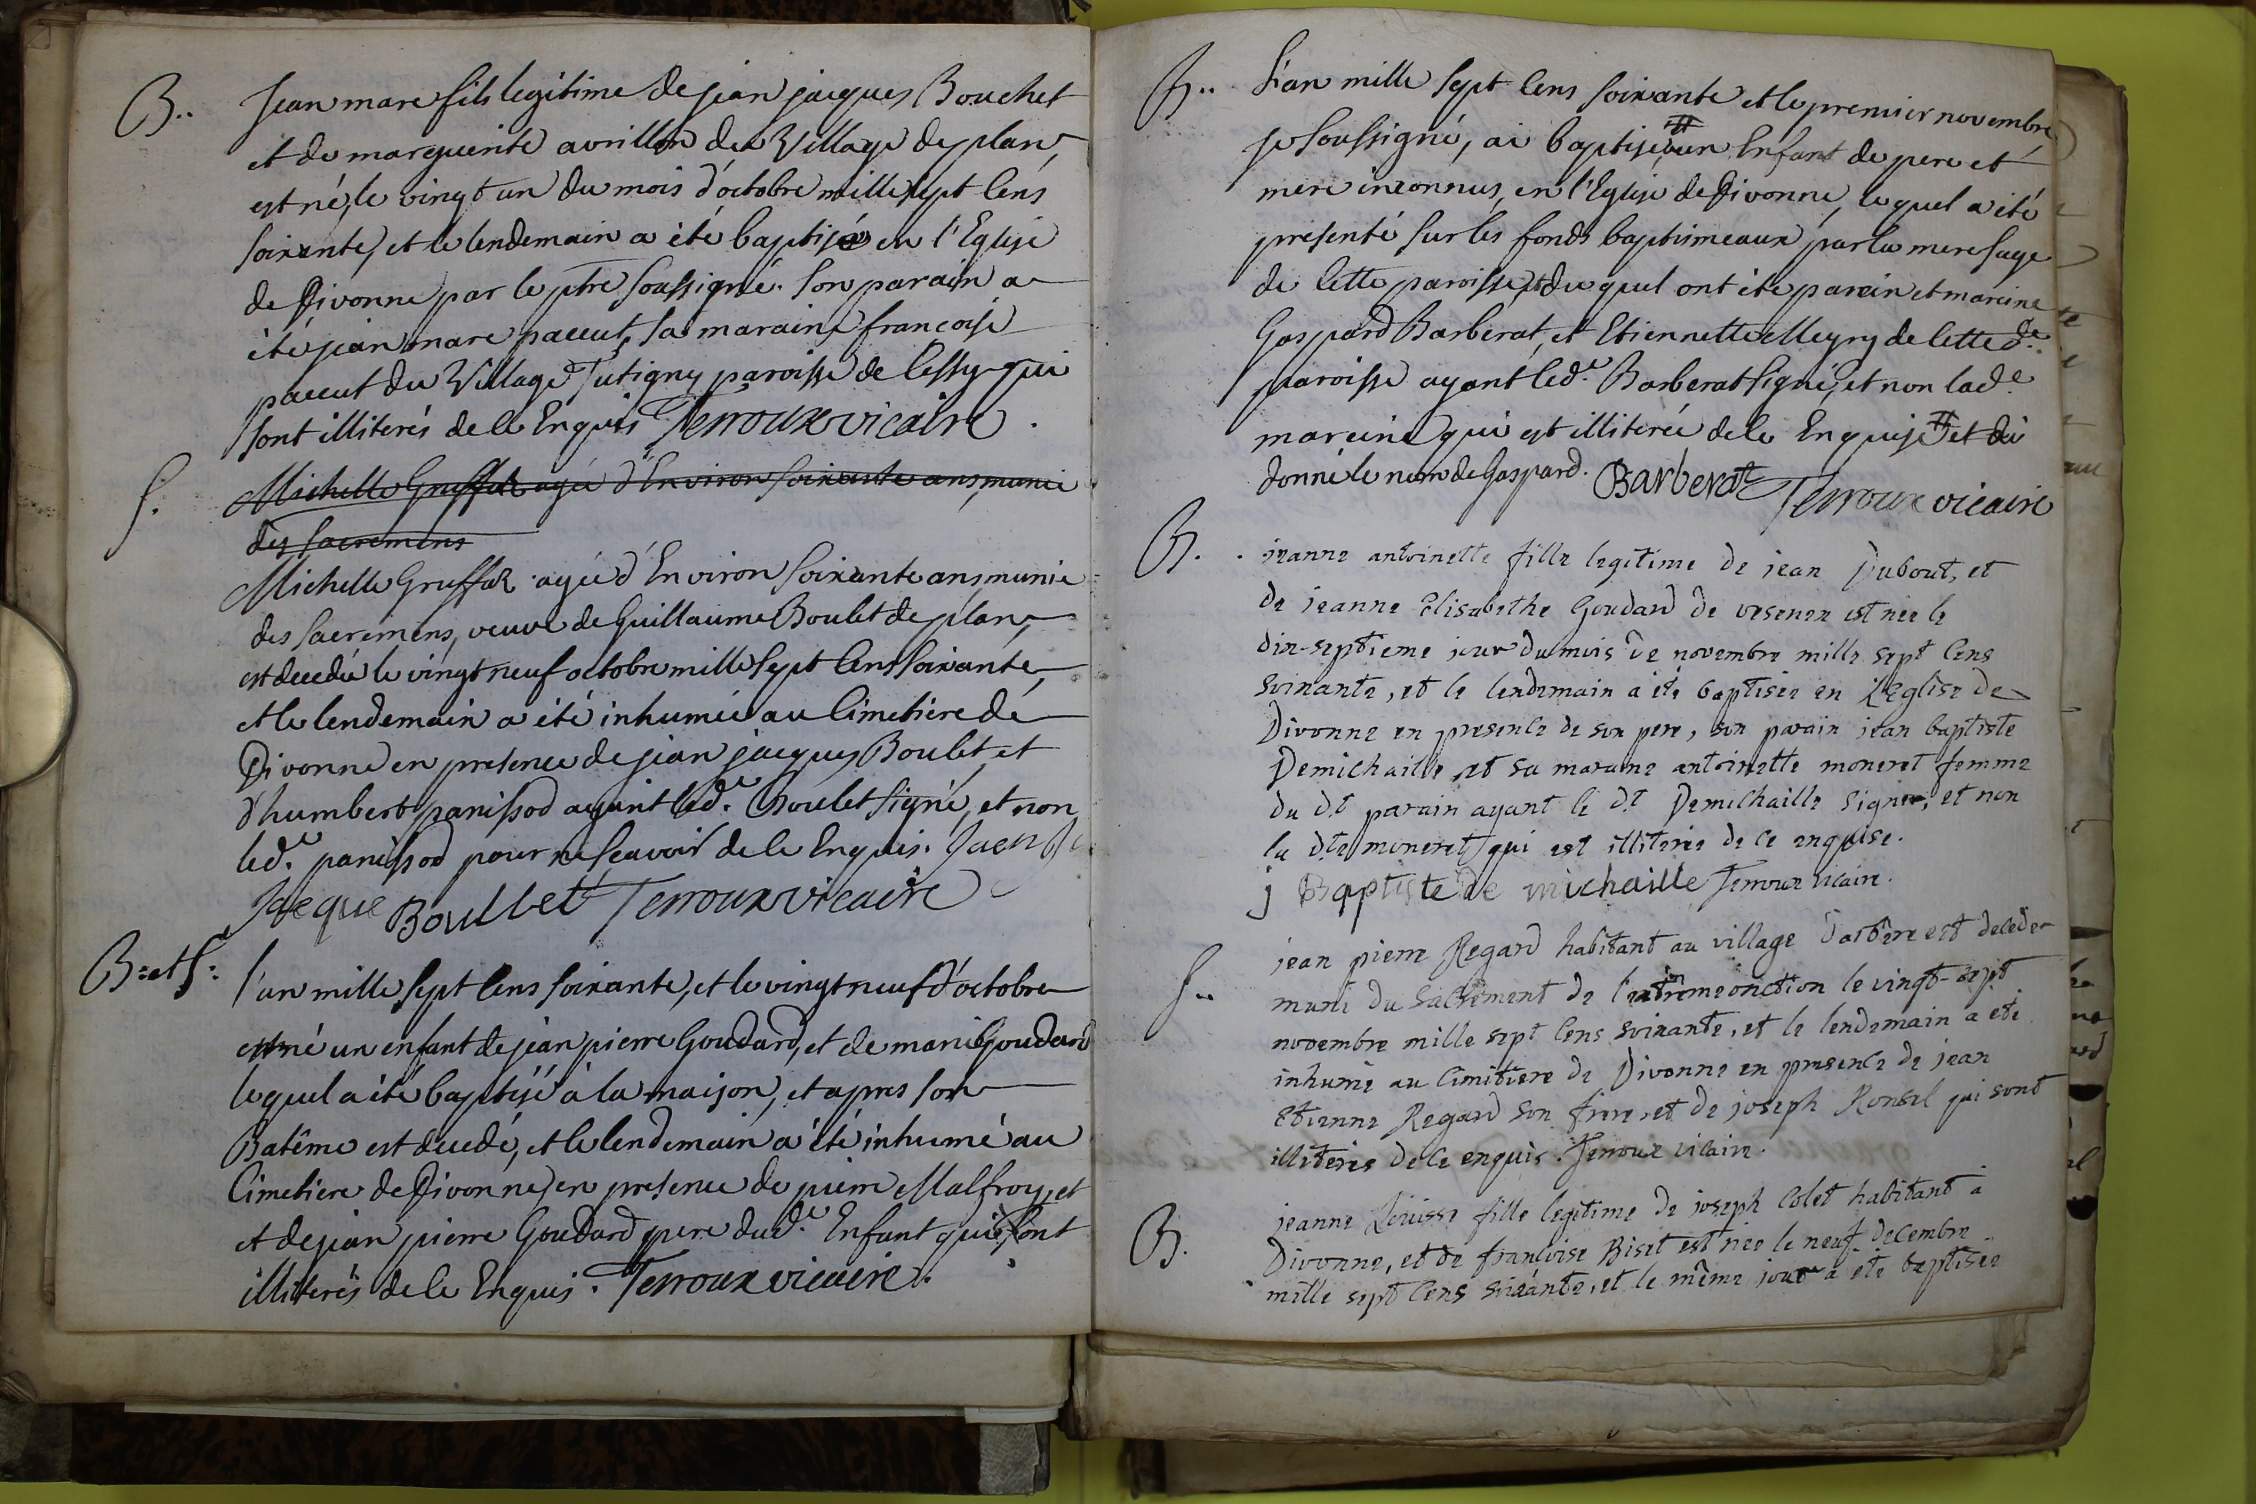 B.. Jean marc fils legitime de jean jaques Bouchet
et de marguerite avrillon du Village de plan,
est né, le vingt un du mois d'octobre mille sept cens
soixante, et le lendemain a été baptisé en l'Eglise
de Divonne par le ptre soussigné. Son parain a
été jean marc paccut, sa maraine francoise
paccut du Village Tutigny paroisse de Cessy qui
sont illiterés de ce Enquis Terroux vicaire.
S. Michelle Gruffat agée d'Environ soixante ans, munie
des sacremens
Michelle Gruffat agée d'Environ soixante ans, munie
des sacremens, veuve de Guillaume Boulet de plan,
est decedée le vingt neuf octobre mille sept cent soixante,
et le lendemain a été inhumée au Cimetiere de
Divonne en presence de jean jacques Boulet et
d'humbert panissod ayant led.t Boulet signé, et non
led.t panissod pour ne scavoir de ce Enquis.
Jacque Boullet Terroux vicaire
B: et S: l'an mille sept cens soixante, et le vingt neuf d'octobre
est né un enfant de jean pierre Goudard, et de marie Goudard
lequel a été baptisé à la maison, et apres son
Batême est decedé, et le lendemain a été inhumé au
Cimetiere de Divonne en presence de pierre Malfroy, et
et de jean pierre Goudard pere dud.t Enfant qui sont
illiterés de ce Enquis. Terroux vicaire.
B.. L'an mille sept cens soixante et le premier novembre
je soussigné, ai baptisé # un Enfant de pere et
mere inconnus, en l'Eglise de Divonne, lequel a été
presenté sur les fonds baptismeaux par la mere sage
de cette paroisse, et duquel ont été parein et mareine
Gaspard Barberat, et Etiennette Meyry de cette d.e
paroisse ayant led.t Barberat signé, et non lad.e
mareine qui est illiterée de ce Enquise # et lui
donné le nom de Gaspard. Barberat Terroux vicaire
B. jeanne antoinette fille legitime de jean Dubout, et
de jeanne Elisabethe Goudard de vesenex est née le
dix-septieme jour du mois de novembre mille sept cens
soixante, et le lendemain a été baptisée en l'Eglise de
Divonne en presence de son pere, son parain jean baptiste
Demichaille et sa maraine antoinette moneret femme
du dt parain ayant le dt Demichaille signe, et non
la dte moneret qui est illiterée de ce enquise.
j Baptiste de michaille Terroux vicaire.
S.. jean pierre Regard habitant au village d'arbere est decedé
muni du sacrement de l'extreme onction le vingt-sept
novembre mille sept cens soixante, et le lendemain a été
inhumé au Cimitiere de Divonne en presence de jean
Etienne Regard son frere et de joseph Ronsel qui sont
illiterés de ce enquis. Terroux vicaire.
B. jeanne Louisse fille legitime de joseph Colet habitant à
Divonne, et de francoise Biset est née le neuf decembre
mille sept cens soixante, et le même jour a été baptisée